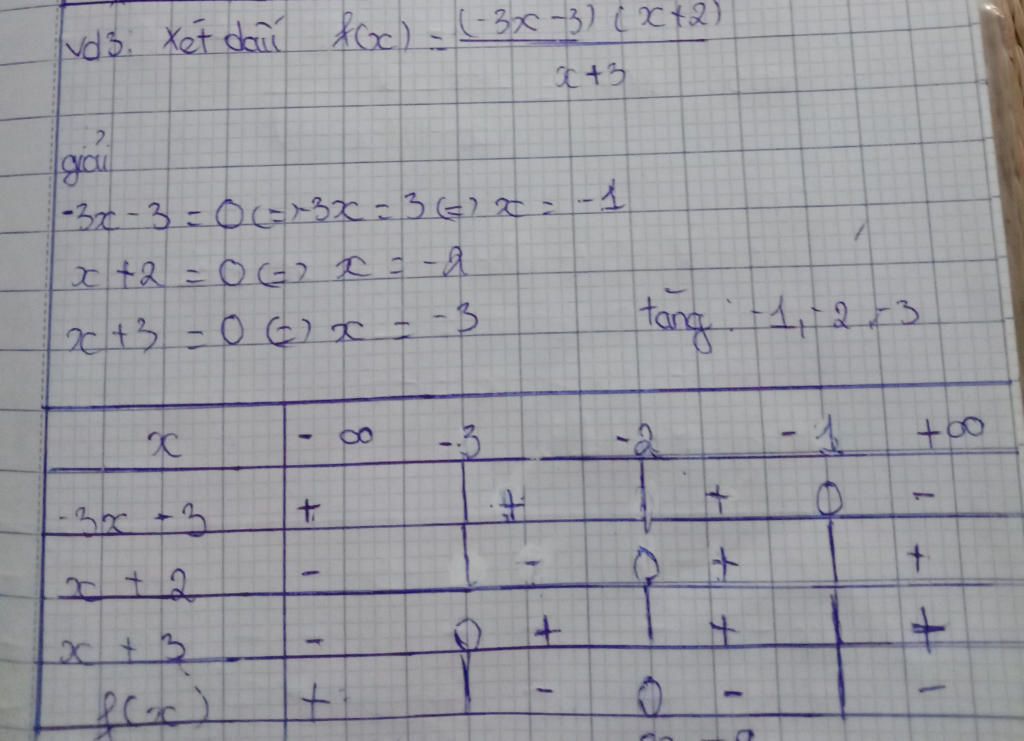 vd3: Xét dấu f(x) = (-3x-3)(x+2)
x+3
giải
-3x-3 = 0 (=) -3x = 3 (=) x = -1
x+2 = 0 (=) x = -2
x+3 = 0 (=) x = -3
tăng: -1, -2, -3
x -∞ -3 -2 -1 +∞
-3x-3 + | + | + 0 -
x+2 - | - 0 + | +
x+3 - 0 + | + | +
f(x) + | - 0 - | -